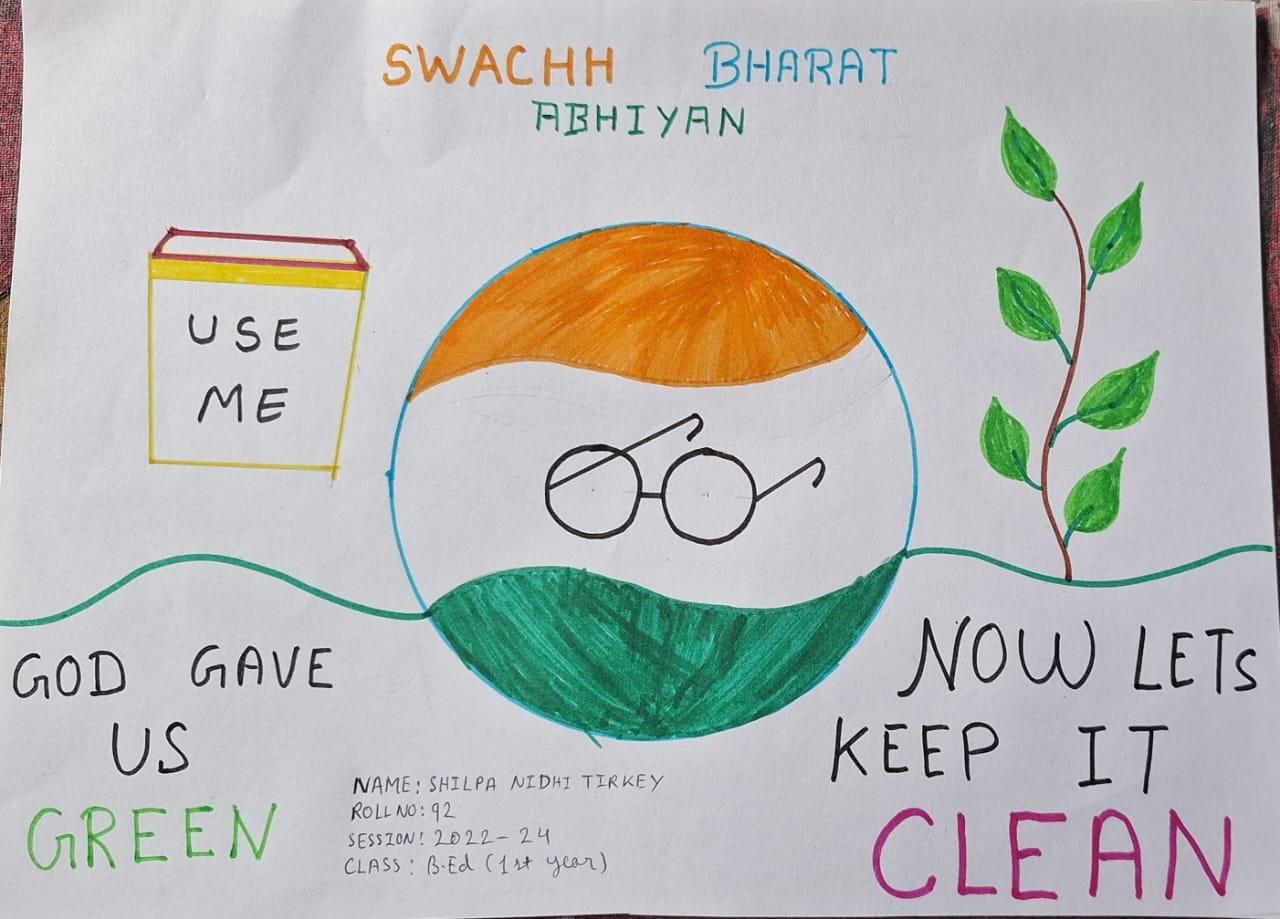 SWACHH BHARAT
ABHIYAN
USE
ME
GOD GAVE
US
GREEN
NOW LETs
KEEP IT
CLEAN
NAME: SHILPA NIDHI TIRKEY
ROLL NO: 92
SESSION: 2022-24
CLASS: B.Ed (1st year)